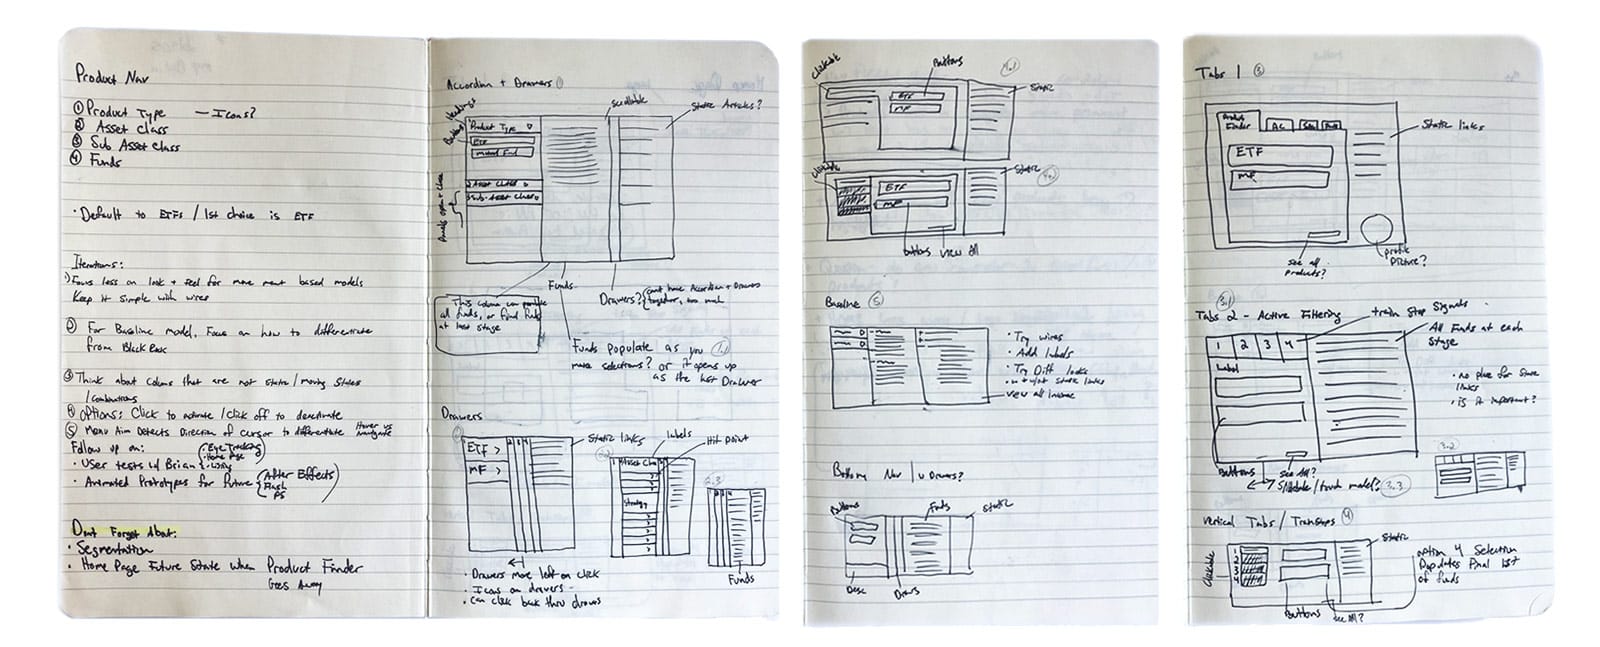 Product Nav
① Product Type — Icons?
② Asset Class
③ Sub Asset Class
④ Funds
· Default to ETFs / 1st choice is ETF
Iterations:
① Focus less on look + feel for movement based models
Keep it simple with wires
② For Baseline model, Focus on how to differentiate
from BlackRock
③ Think about columns that are not static/moving
④ Options: Click to activate / click off to deactivate
⑤ Menu Aim Detects Direction of cursor to differentiate Hover vs
navigate
Follow up on:
· Eye Tracking
· Home Page
· User tests w/ Brian
· Animated Prototypes for future
After Effects
Flash
PS
Dont Forget About:
· Segmentation
· Home Page Future State when Product Finder
Goes Away
Accordian + Drawers ①
Headings
Buttons
scrollable
Static Articles?
Product Type
ETF
Mutual Fund
2 Asset Class
3 Sub-Asset Class
Panels open + close
Funds
Drawers?
cant have Accordian + Drawers
together, too much
This column can
all funds, or final funds
at last stage
Funds populate as you
make selections? or it opens up
as the last Drawer
Drawers
ETF >
MF >
Static links
labels
Hit point
Asset Class
Strategy
2.3
Funds
· Drawers move left on click
· Icons on drawers
· can click back thru drawers
Clickable
Buttons
4.1
Static
ETF
MF
Clickable
Static
ETF
MF
buttons view All
Baseline ⑤
· Try wires
· Add labels
· Try Diff looks
static links
view all
Bottom Nav w Drawers?
Buttons
Funds
Static
Desc
Draws
Tabs 1 ③
Product
Finder
AC
Static links
ETF
MF
see all
Products?
profile
picture?
3.1
Tabs 2 - Active Filtering
train stop signals
All Funds at each
stage
1 2 3 4
Label
· no place for
links
· is it important?
3.2
Buttons
see All?
Slidable/touch model? 3.3
Vertical Tabs/Trainstops ④
Clickable
1
2
3
4
Static
option 4 Selection
updates final list
of funds
Buttons
see All?